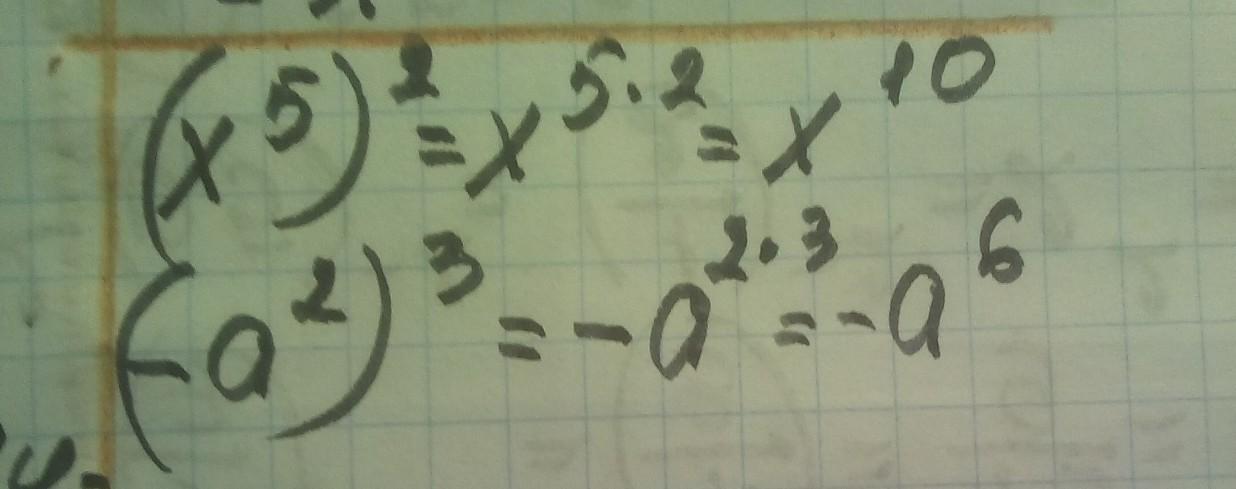 (x⁵)² = x⁵·² = x¹⁰
(-a²)³ = -a²·³ = -a⁶